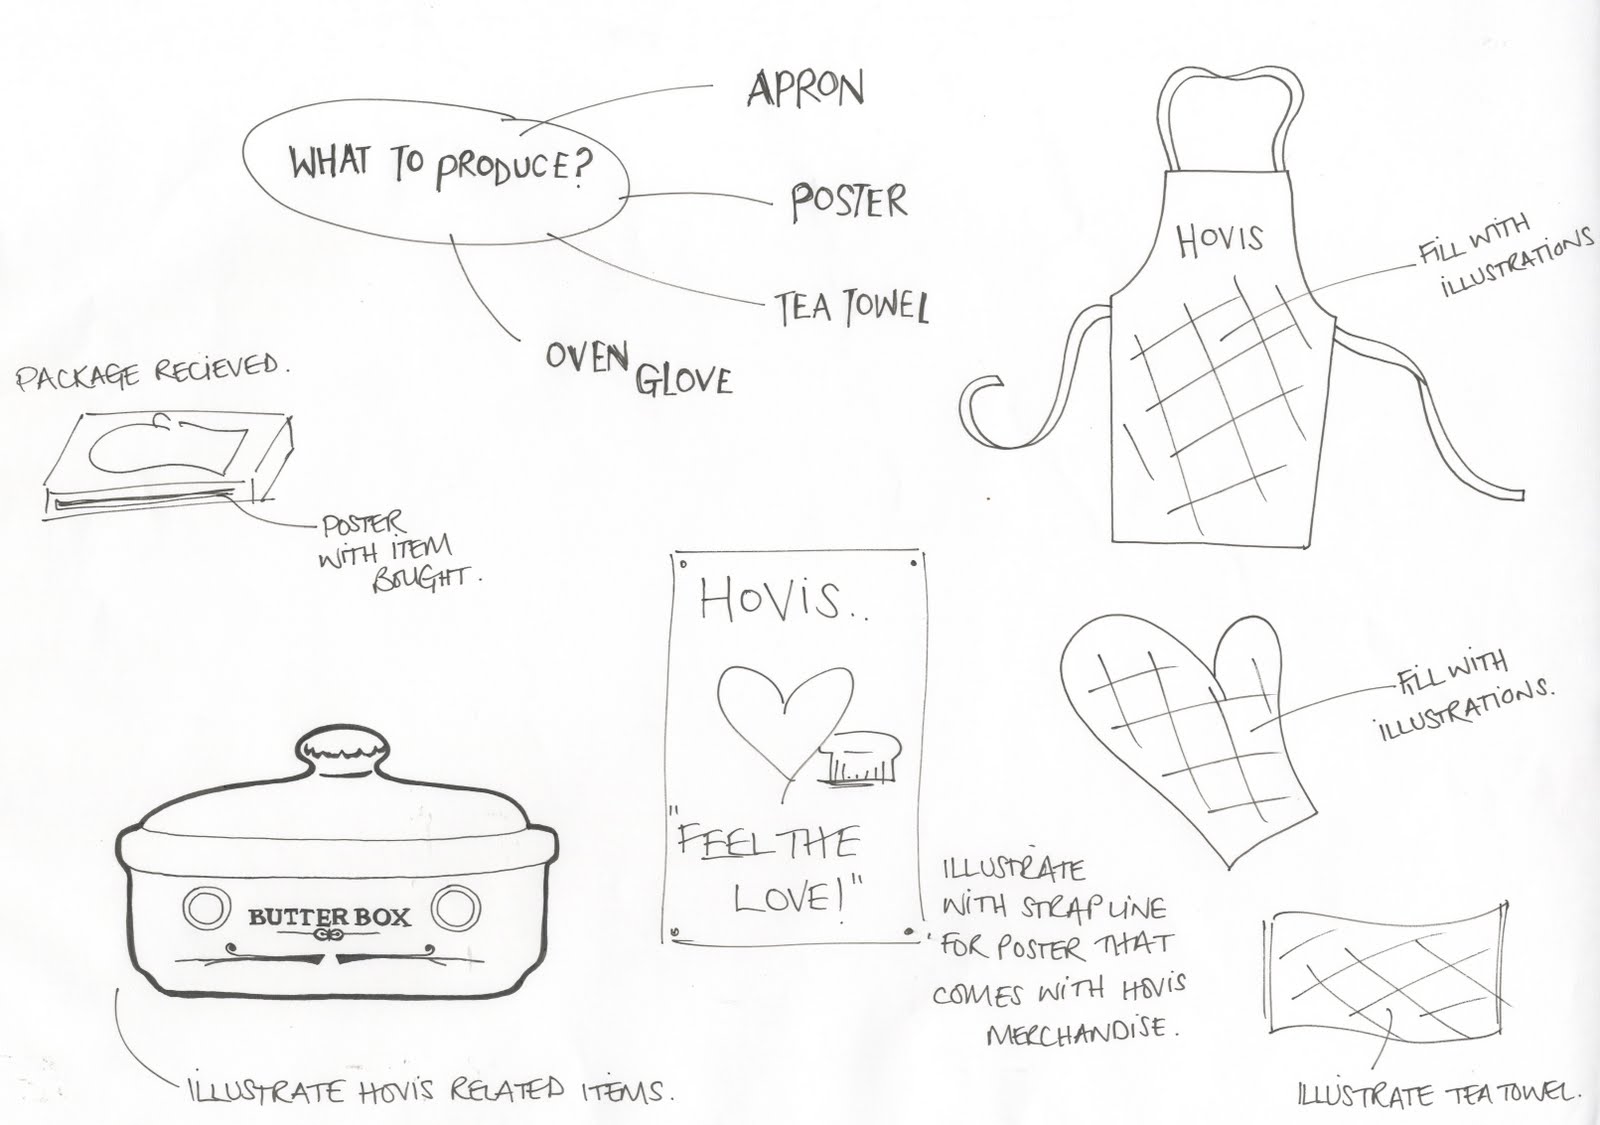 WHAT TO PRODUCE?
APRON
POSTER
TEA TOWEL
OVEN
GLOVE
PACKAGE RECIEVED.
POSTER
WITH ITEM
BOUGHT.
HOVIS
FILL WITH
ILLUSTRATIONS
HOVIS..
"FEEL THE
LOVE!"
ILLUSTRATE
WITH STRAPLINE
FOR POSTER THAT
COMES WITH HOVIS
MERCHANDISE.
FILL WITH
ILLUSTRATIONS.
BUTTER BOX
ILLUSTRATE HOVIS RELATED ITEMS.
ILLUSTRATE TEA TOWEL.